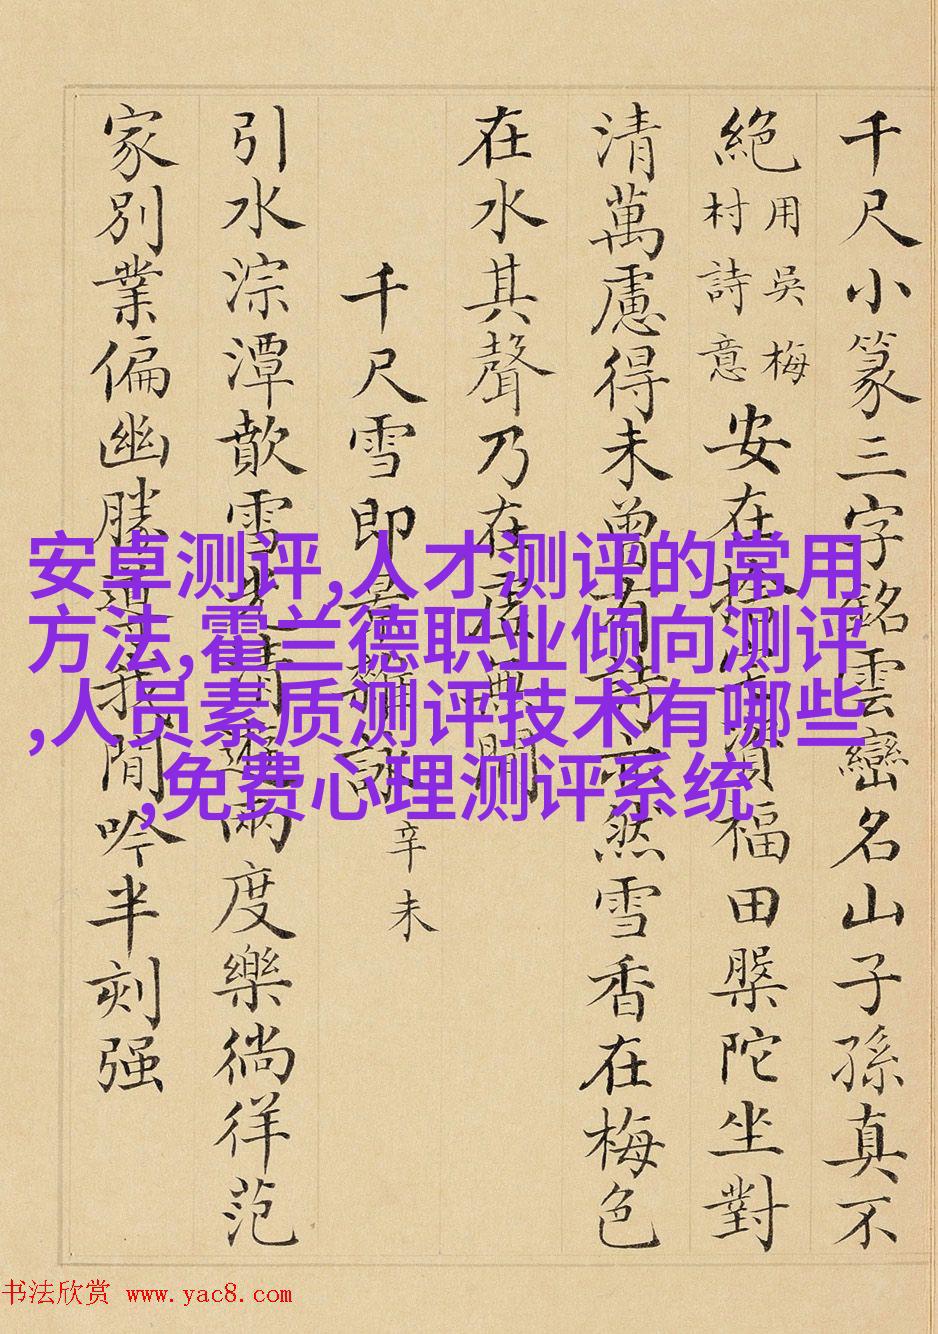 千尺小篆三字銘雲巒名山子孫真不
絶用吳梅村詩意安在福田槃陀坐對
清萬慮得未曾有然雪香在梅色
在水其聲乃在
千尺雪即辛未
引水淙潭歕雪度樂徜徉范
家別業偏幽勝間吟半刻强
安卓测评,人才测评的常用
方法,霍兰德职业倾向测评
,人员素质测评技术有哪些
,免费心理测评系统
书法欣赏 www.yac8.com